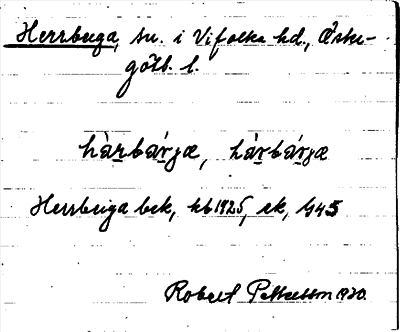 Herrberga, sn. i Vifolka hd., Öster-
götl. l.
hàrbárjæ, hárbárjæ
Herrberga bck, kb 1925, ek, 445
Robert Pettersson 1930.